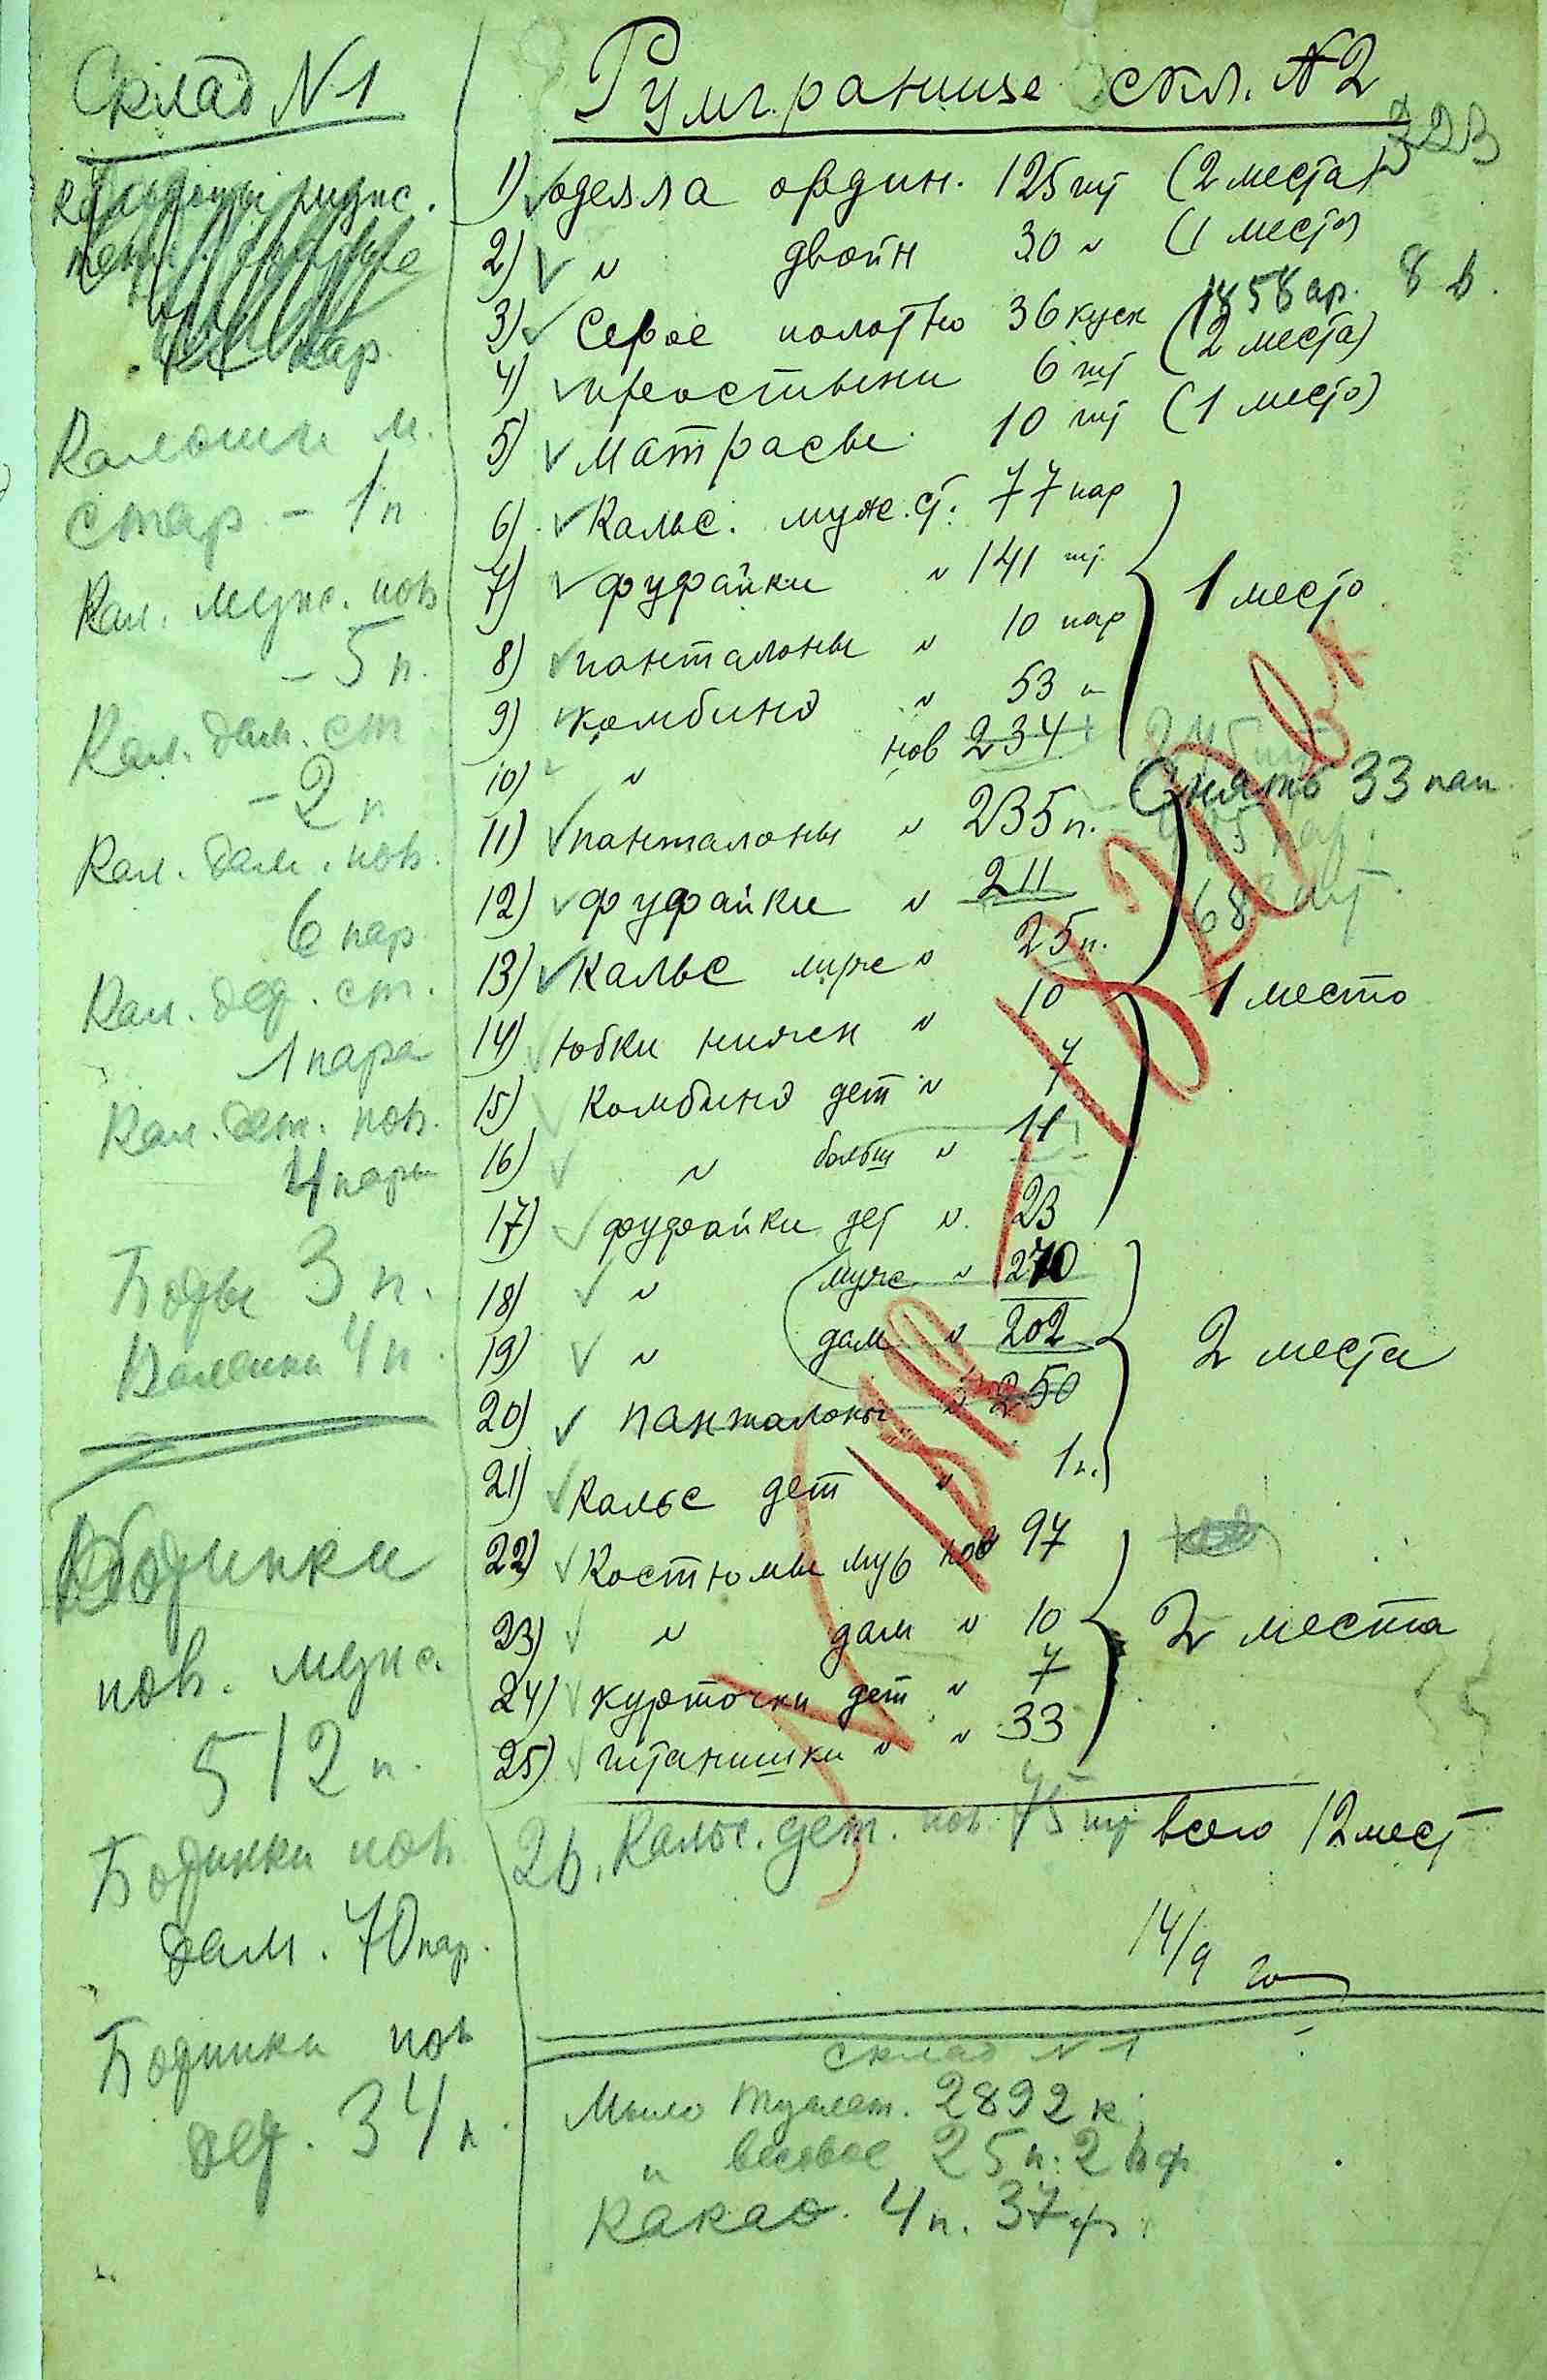 Склад N 1
Калоши м.
стар. - 1 п
Кал. мужс. нов
- 5 п.
Кал. дам. ст
- 2 п
Кал. дам. нов.
6 пар.
Кал. дет. ст.
1 пара
Кал. дет. нов.
4 пары
Боты 3 п.
Валенки 4 п.
Ботинки
нов. мужс.
512 п.
Ботинки нов.
дам. 70 пар.
Ботинки нов
дет. 34 п
скл. N 2
1) одеяла ордин. 125 шт (2 места)
2) " двойн 30 " (1 место)
3) Серое полотно 36 куск 1858 ар. 8 в.
4) простыни 6 шт (2 места)
5) матрасы 10 шт (1 место)
6) Кальс. муж. ст. 77 пар
7) фуфайки " 141 шт.
1 место
8) панталоны " 10 пар
9) комбинэ " 53 "
10) " нов 234
Снять 33 пан.
11) панталоны " 235 п.
12) фуфайки " 211
68 шт.
13) Кальс муж " 25 п.
14) юбки нижен " 10
1 место
15) Комбинэ дет " 7
16) " больш " 11
17) фуфайки дет " 23
18) " муж " 270
19) " дам " 202
2 места
20) панталоны " 250
21) Кальс дет " 1 п.
22) Костюмы муж нов 97
23) " дам " 10
2 места
24) курточки дет " 7
25) штанишки " " 33
26. Кальс. дет. нов. 75 шт
всего 12 мест
14/9
склад N 1
Мыло туалет. 2892 к.
" весовое 25 п. 2
Какао. 4 п. 37 ф.